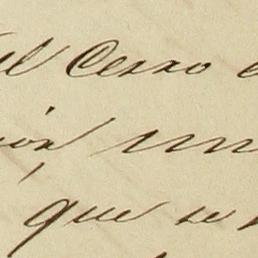 el Cerro
ión, un
que se